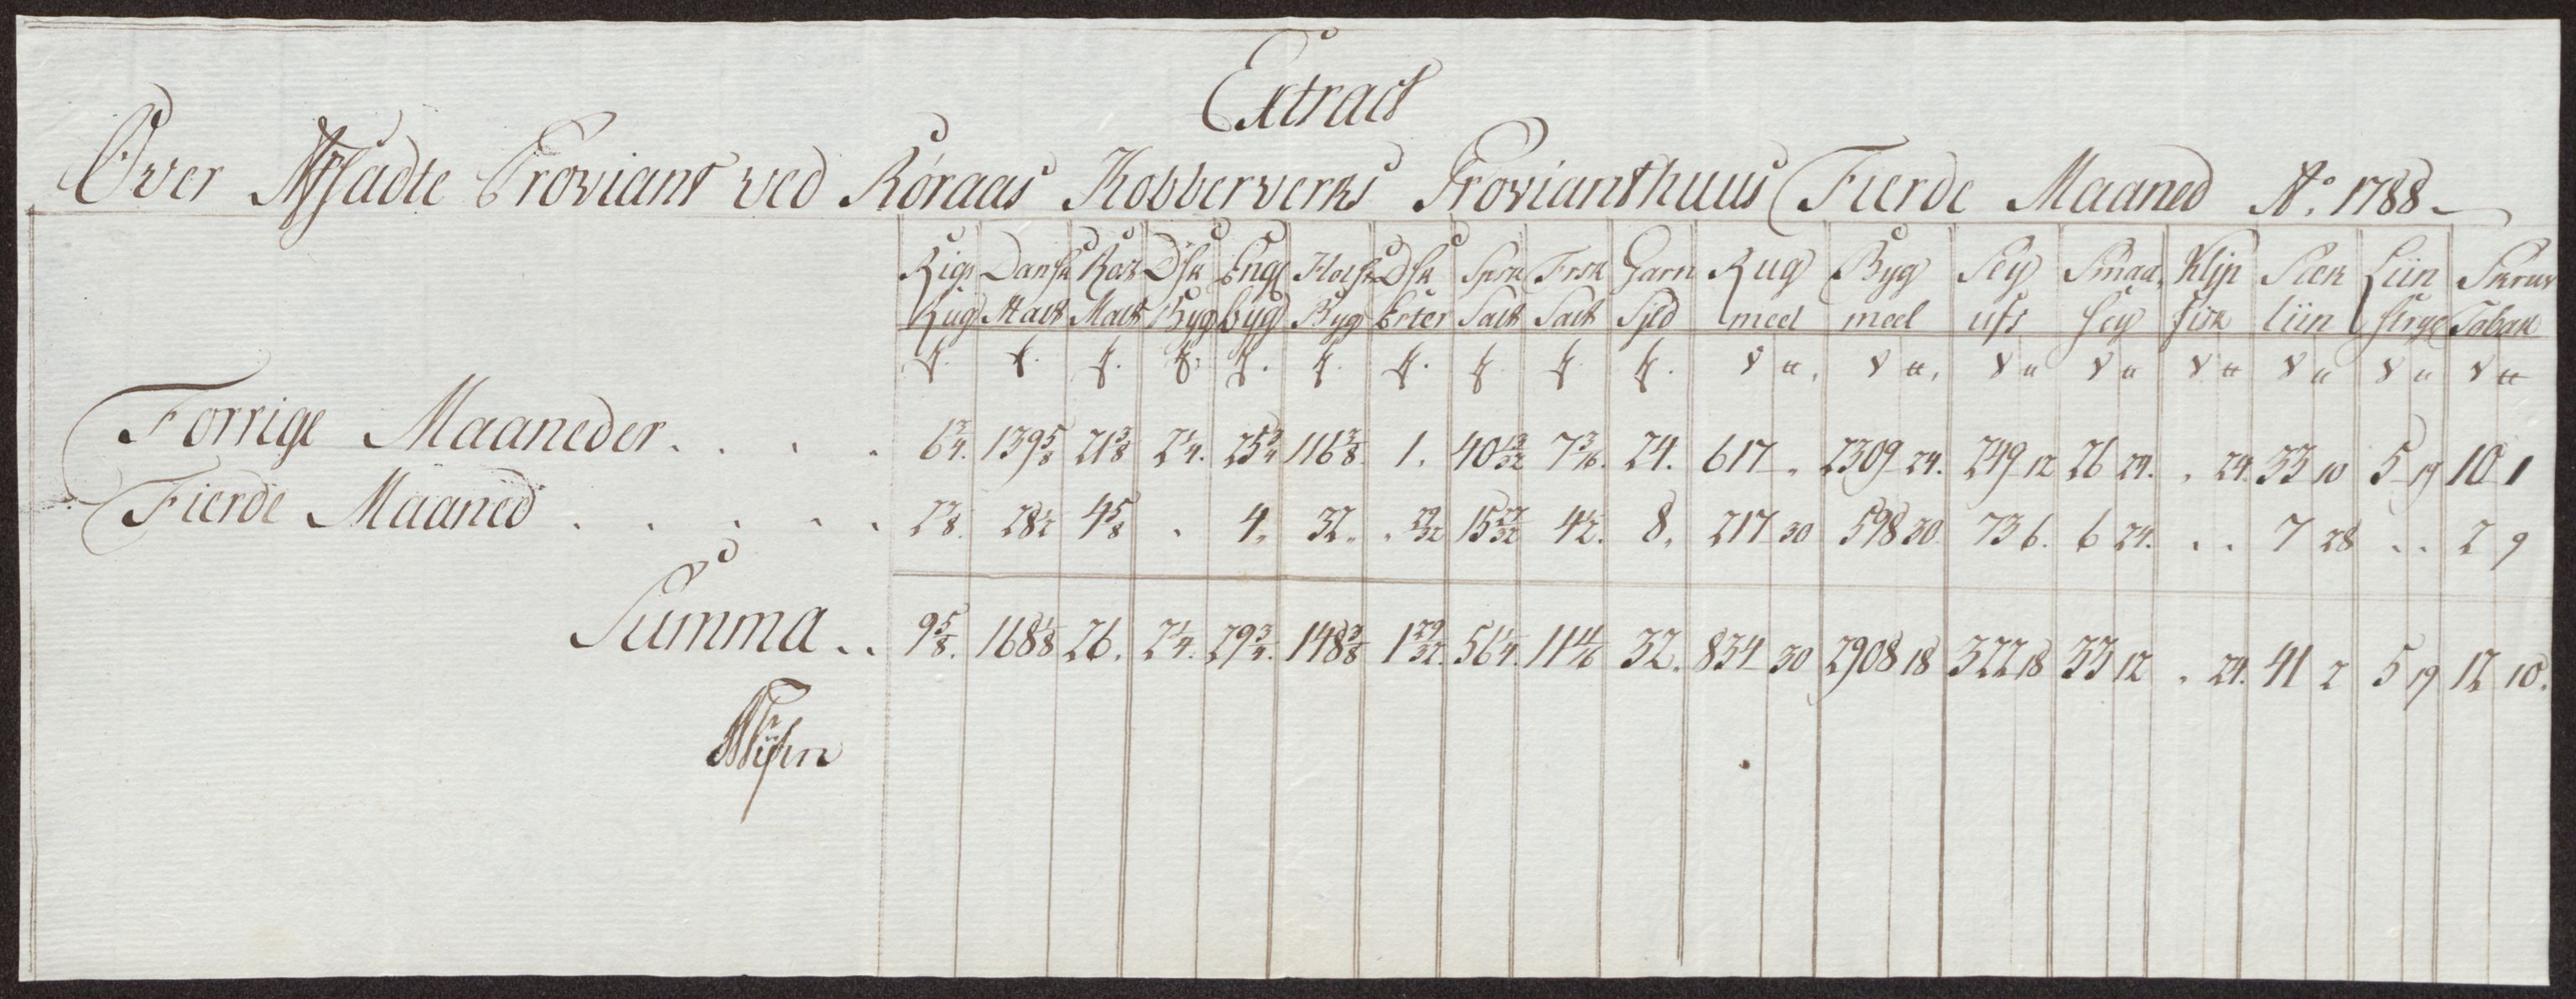 Extract
Over Afsadte Proviant ved Röraas Kobberverks Provianthuus Fierde Maaned Ao. 1788
Rigs Dansk Ros Dsk Engl Holst Dsk Spsk Frsk Garn Rug Byg Sey Smaa Klip Sæk Liin Skruv
Rug Malt Malt Byg byg Byg Erter Salt Salt Sild meel meel ufs sey fisk liin Tobak
Forrige Maaneder . . . . 6 3/4. 139 5/8 21 3/8 2 1/4. 25 3/4 116 3/8. 1. 40 13/32 7 3/16. 24. 617 „ 2309 24. 249 12 26 24. „ 24. 33 10 5 19 10 1
Fierde Maaned . . . . . 2 7/8. 28 1/2 4 5/8 „ 4. 32. „ 29/32 15 27/32 4 1/2. 8. 217 30 598 30 73 6. 6 24. „ „ 7 28 „ „ 2 9
Summa .. 9 5/8. 168 1/8 26. 2 1/4. 29 3/4. 148 3/8 1 29/32. 56 1/4. 11 11/16 32. 834 30 2908 18 322 18 33 12 „ 24. 41 2 5 19 12 10.